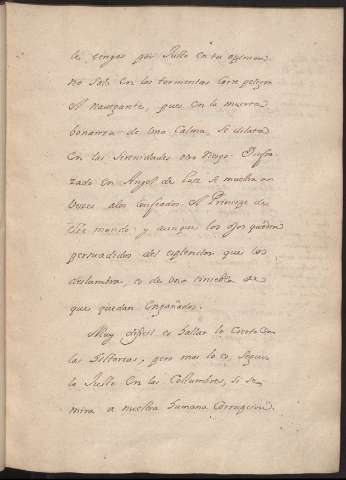 le tengas por Justo en tu opinion.
no solo en las tormentas corre peligro
el navegante, pues en la muerta
bonanza de una Calma, se dilata
en las serenidades otro riesgo Disfra
zado en Angel de Luz se muestra a
veces a los confiados el Principe de
este mundo y aunque los ojos queden
persuadidos del esplendor que los
deslumbra, es de una tiniebla de
que quedan engañados.
Muy dificil es hallar lo Cierto en
las Historias, pero mas lo es seguir
lo Justo en las Costumbres, si se
mira a nuestra humana Corrupcion.